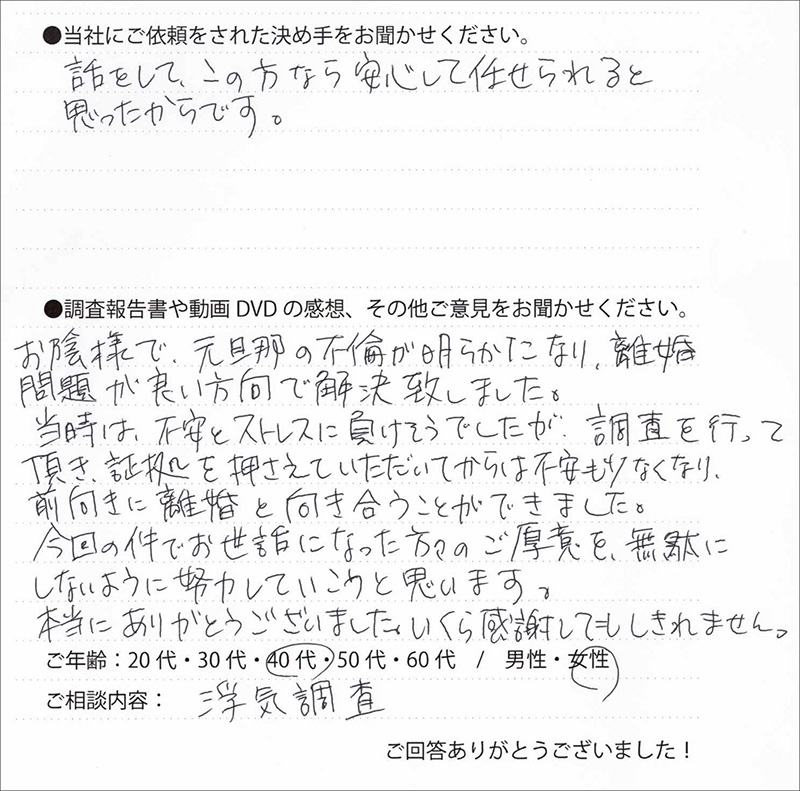 ●当社にご依頼をされた決め手をお聞かせください。
話をして、この方なら安心して任せられると
思ったからです。
●調査報告書や動画DVDの感想、その他ご意見をお聞かせください。
お陰様で、元旦那の不倫が明らかになり、離婚
問題が良い方向で解決致しました。
当時は、不安とストレスに負けそうでしたが、調査を行って
頂き、証拠を押さえていただいてからは不安もなくなり、
前向きに離婚と向き合うことができました。
今回の件でお世話になった方々のご厚意を、無駄に
しないように努力していこうと思います。
本当にありがとうございました。いくら感謝してもしきれません。
ご年齢：20代・30代・40代・50代・60代 / 男性・女性
ご相談内容： 浮気調査
ご回答ありがとうございました！